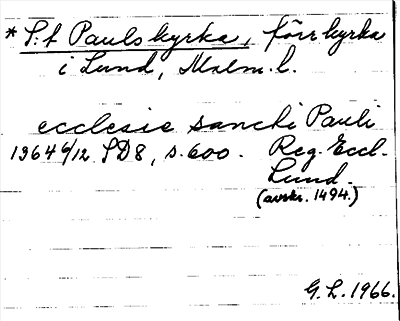 * S:t Pauls kyrka, förr kyrka
i Lund, Malm. l.
ecclesie sancti Pauli
1364 6/12 SD8, s.600. Reg. Eccl.
Lund.
(avskr. 1494.)
G. L. 1966.